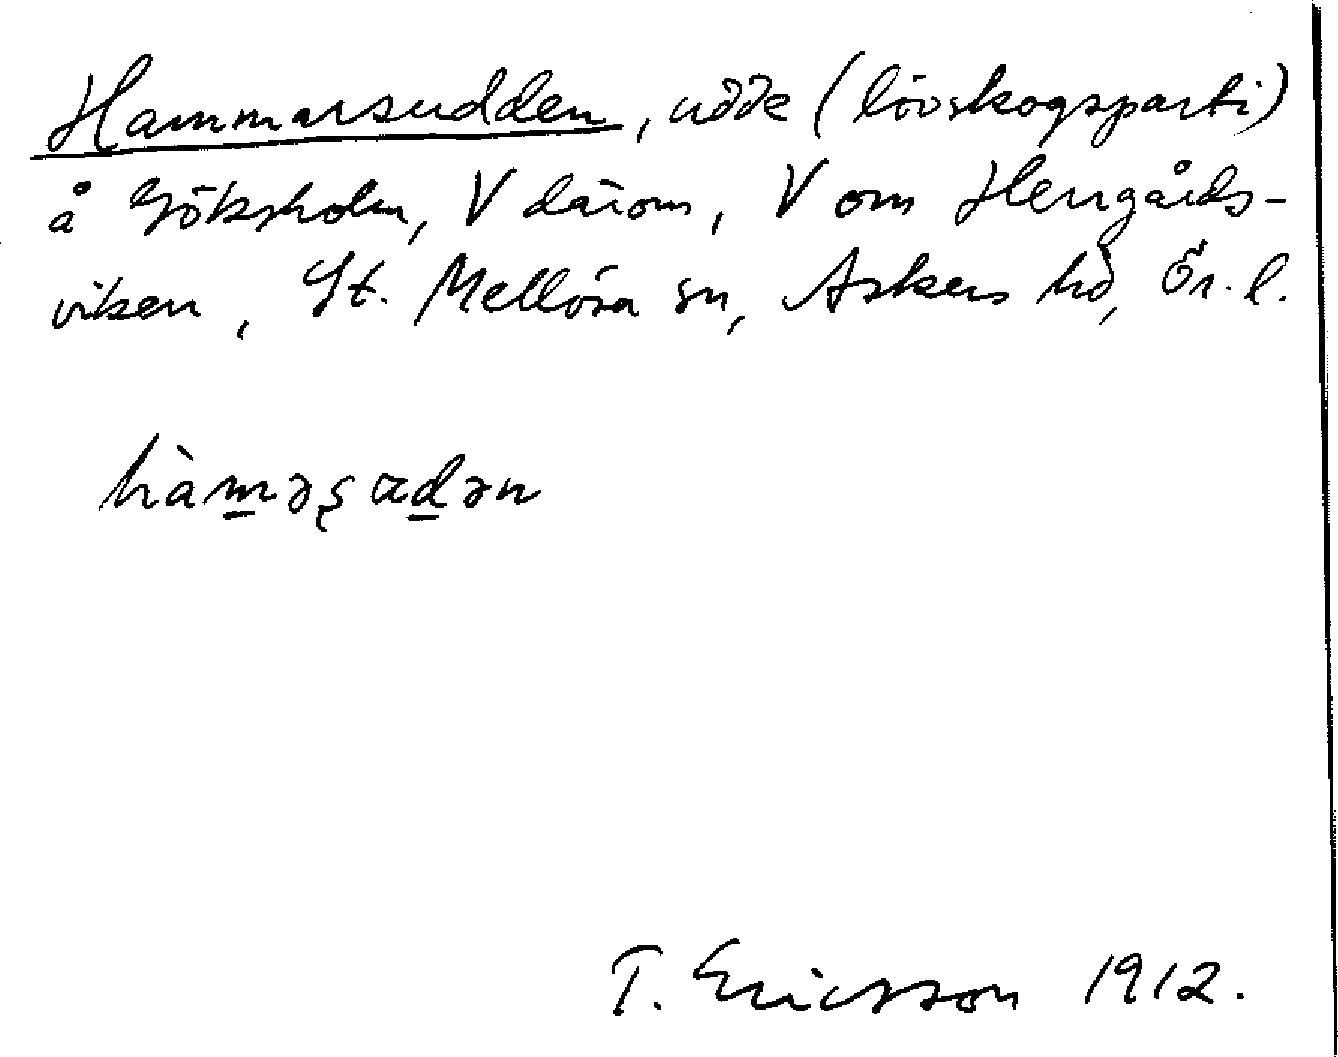 Hammarsudden, udde (lövskogsparti)
å Göksholm, V därom, V om Herrgårds-
viken, St. Mellösa sn, Askers hd, Ör. l.
hàm̲əʂɑd̲ən
T. Ericsson 1912.